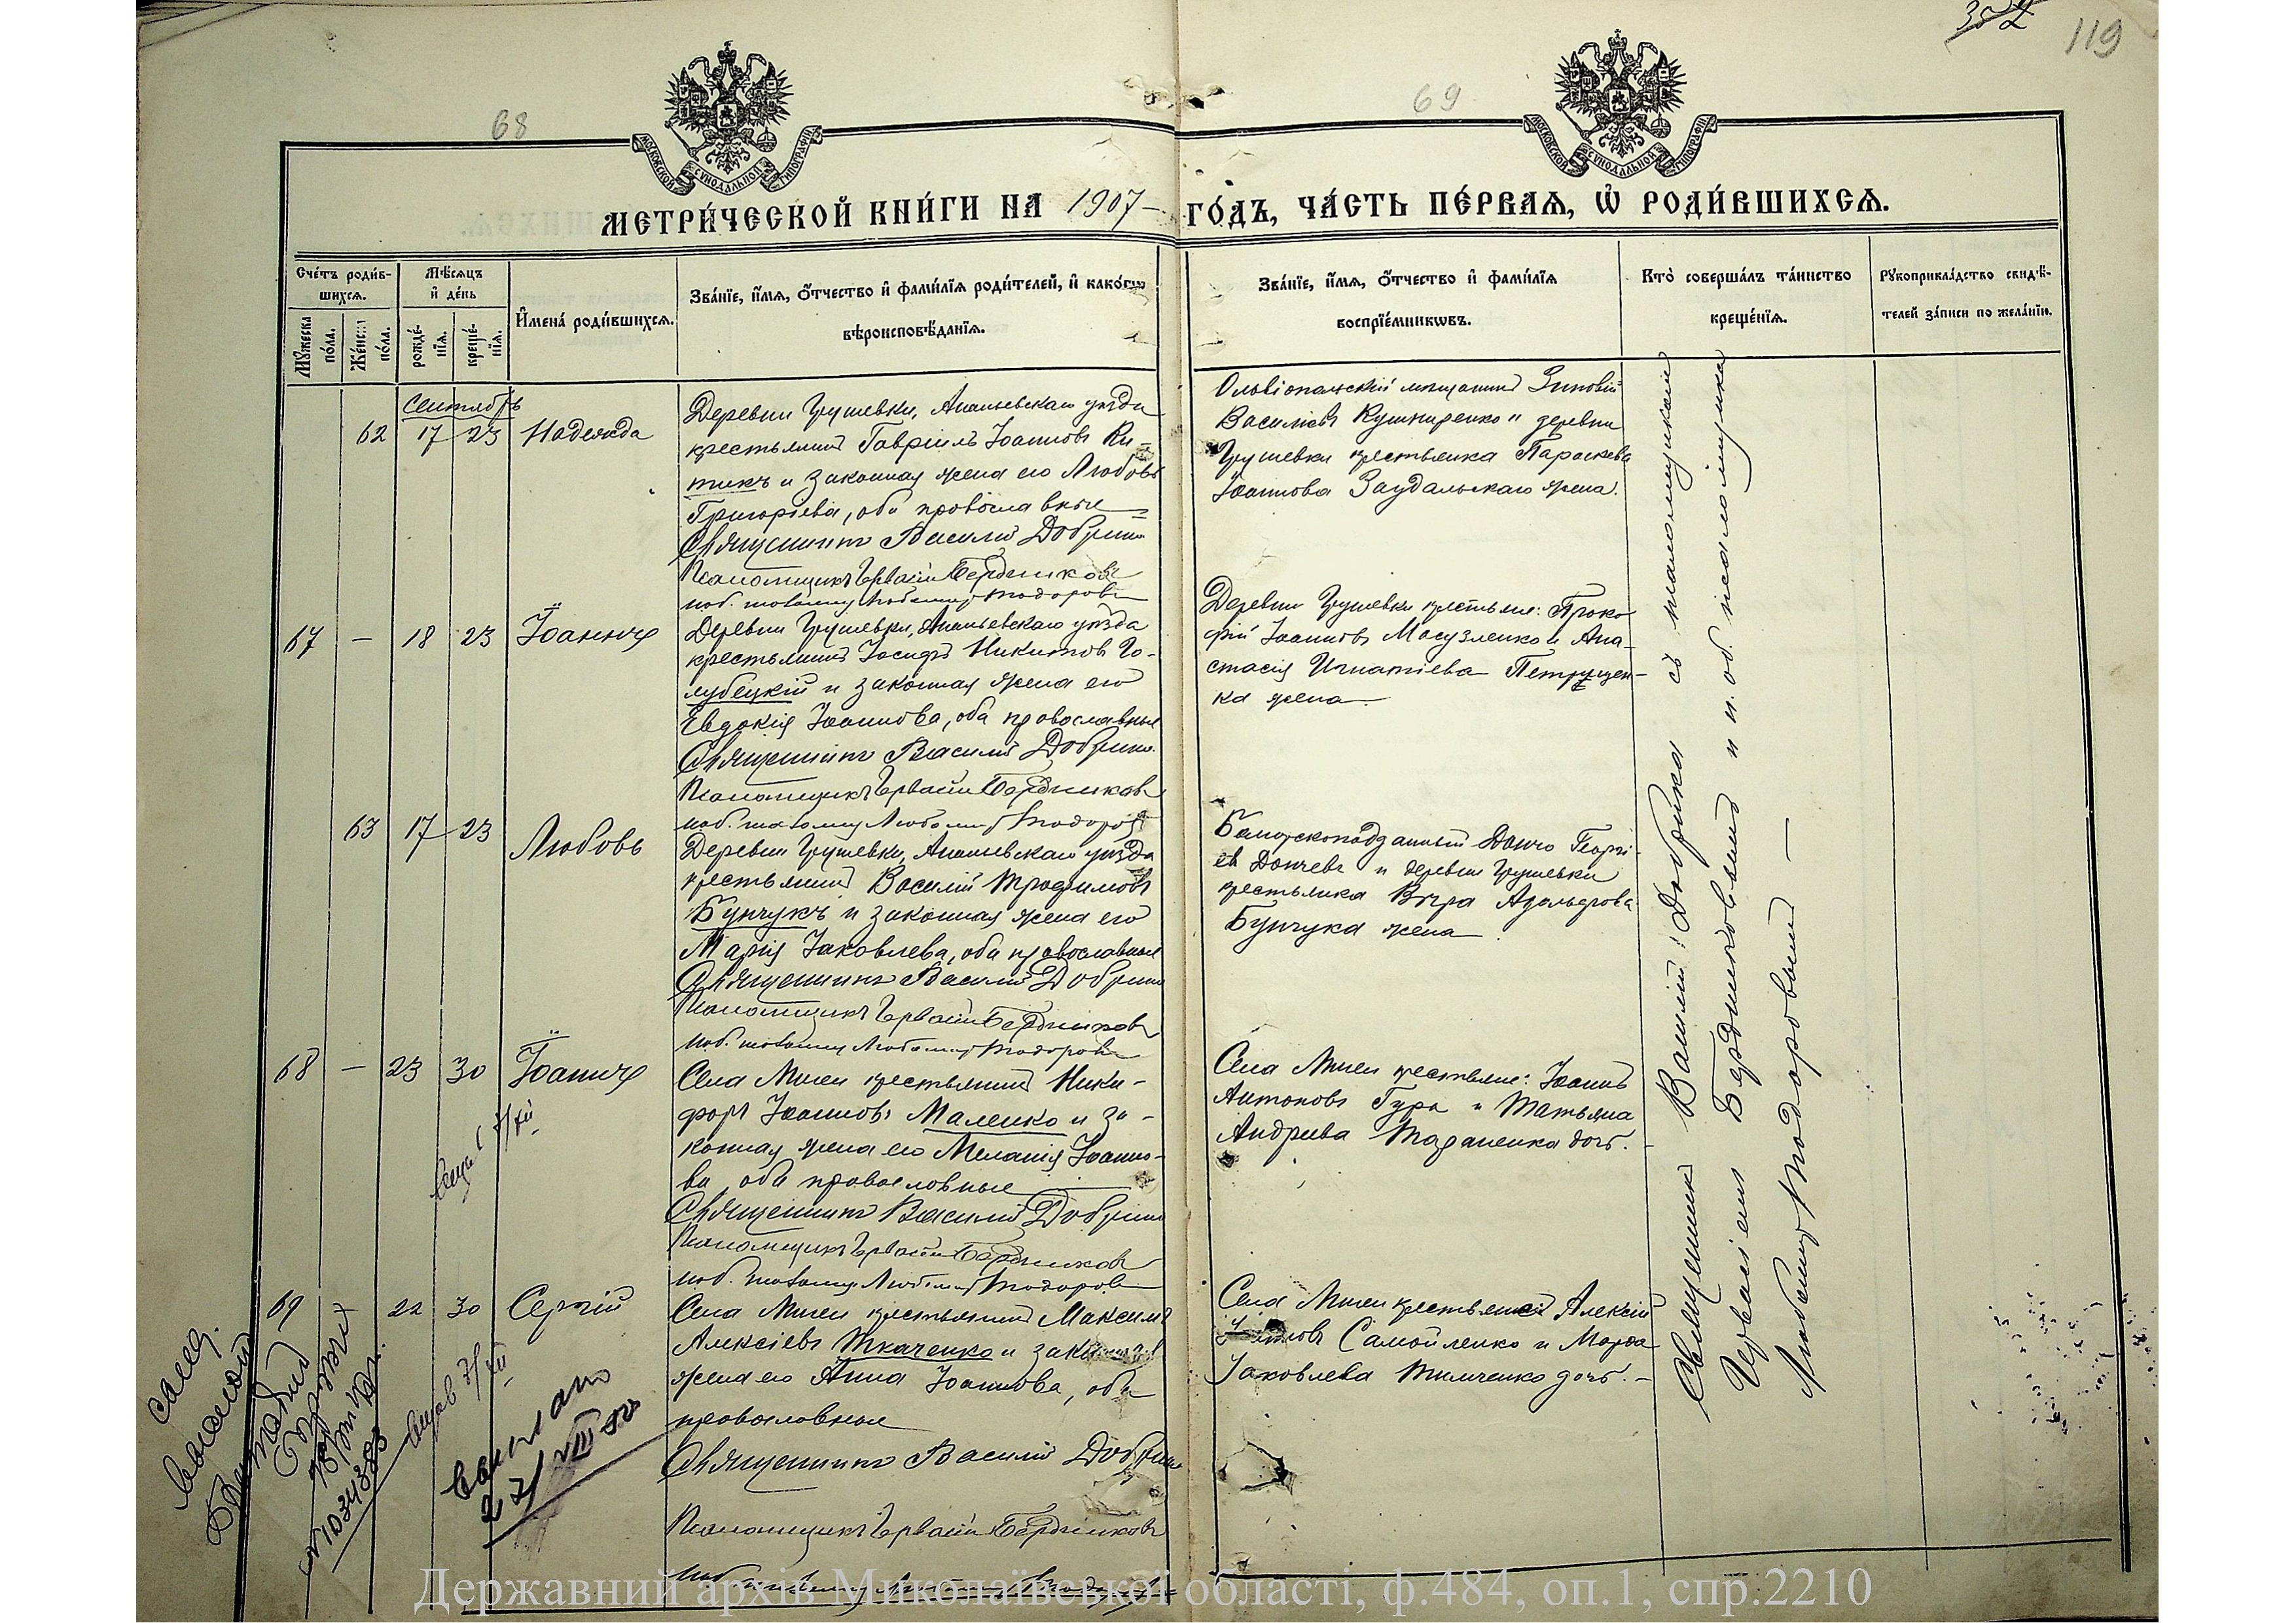 119
68
69
МОСКОВСКОЙ СѴНОДАЛЬНОЙ ТИПОГРАФІИ
МОСКОВСКОЙ СѴНОДАЛЬНОЙ ТИПОГРАФІИ
МЕТРИ́ЧЕСКОЙ КНИ́ГИ НА 1907 ГО́ДЪ, ЧА́СТЬ ПЕ́РВАѦ, Ѡ РОДИ́ВШИХСѦ.
Сче́тъ роди́в-
шихсѧ.
Мꙋжеска по́ла.
Же́нска по́ла.
Мѣ́сѧцъ
и҆ де́нь
рожде́-
нїѧ.
креще́-
нїѧ.
И҆мена́ роди́вшихсѧ.
Зва́нїе, и҆́мѧ, ѻ҆́тчество и҆ фами́лїѧ роди́телей, и҆ како́гѡ
вѣроисповѣ́данїѧ.
Зва́нїе, и҆́мѧ, ѻ҆́тчество и҆ фами́лїѧ
воспрїе́мникѡвъ.
Кто̀ соверша́лъ та́инство
креще́нїѧ.
Рꙋкоприкла́дство свидѣ́-
телей за́писи по жела́нїю.
Сентябрь
62 17 23 Надежда
Деревни Грушевки, Ананьевскаго уѣзда
крестьянинъ Гавріилъ Іоанновъ Ки-
тикъ и законная жена его Любовь
Григоріева, оба православные
Священникъ Василій Добрика
Псаломщикъ Гервасій Бердниковъ
Любомиръ Тодоровъ
Ольвіопольскій мещанинъ Зиновій
Васильевъ Кушниренко и деревни
Грушевки крестьянка Параскева
Іоаннова Заудальскаго жена.
67 — 18 23 Іоаннъ
Деревни Грушевки, Ананьевскаго уѣзда
крестьянинъ Іосифъ Никитовъ Го-
лубецкій и законная жена его
Евдокія Іоаннова, оба православные
Священникъ Василій Добрика
Псаломщикъ Гервасій Бердниковъ
Любомиръ Тодоровъ
Деревни Грушевки крестьяне: Проко-
фій Іоанновъ и Ана-
стасія Игнатіева Петрущен-
ка жена.
63 17 23 Любовь
Деревни Грушевки, Ананьевскаго уѣзда
крестьянинъ Василій Трофимовъ
Бунчукъ и законная жена его
Марія Іаковлева, оба православные
Священникъ Василій Добрика
Псаломщикъ Гервасій Бердниковъ
Любомиръ Тодоровъ
Болгарскоподданный Дончо Георгі-
евъ Дончевъ и деревни Грушевки
крестьянка Вѣра Адольфова
Бунчука жена
68 — 23 30 Іоаннъ
Села Мигеи крестьянинъ Ники-
форъ Іоанновъ Маленко и за-
конная жена его Меланія Іоанно-
ва, оба православные
Священникъ Василій Добрика
Псаломщикъ Гервасій Бердниковъ
Любомиръ Тодоровъ
Села Мигеи крестьяне: Іоаннъ
Антоновъ Гура и Татьяна
Андреева Тараненка дочь.
69 22 30 Сергій
Села Мигеи крестьянинъ Максимъ
Алексіевъ Ткаченко и законная
жена его Анна Іоаннова, оба
православные
Священникъ Василій Добрика
Псаломщикъ Гервасій Бердниковъ
Села Мигеи крестьяне Алексій
Самойленко и Марѳа
Іаковлева Тимченко дочь.
Священникъ Василій Добрика съ псаломщикомъ
Гервасіемъ Бердниковымъ и и. об. псаломщика
Любомиръ Тодоровымъ —
Державний архів Миколаївської області, ф.484, оп.1, спр.2210